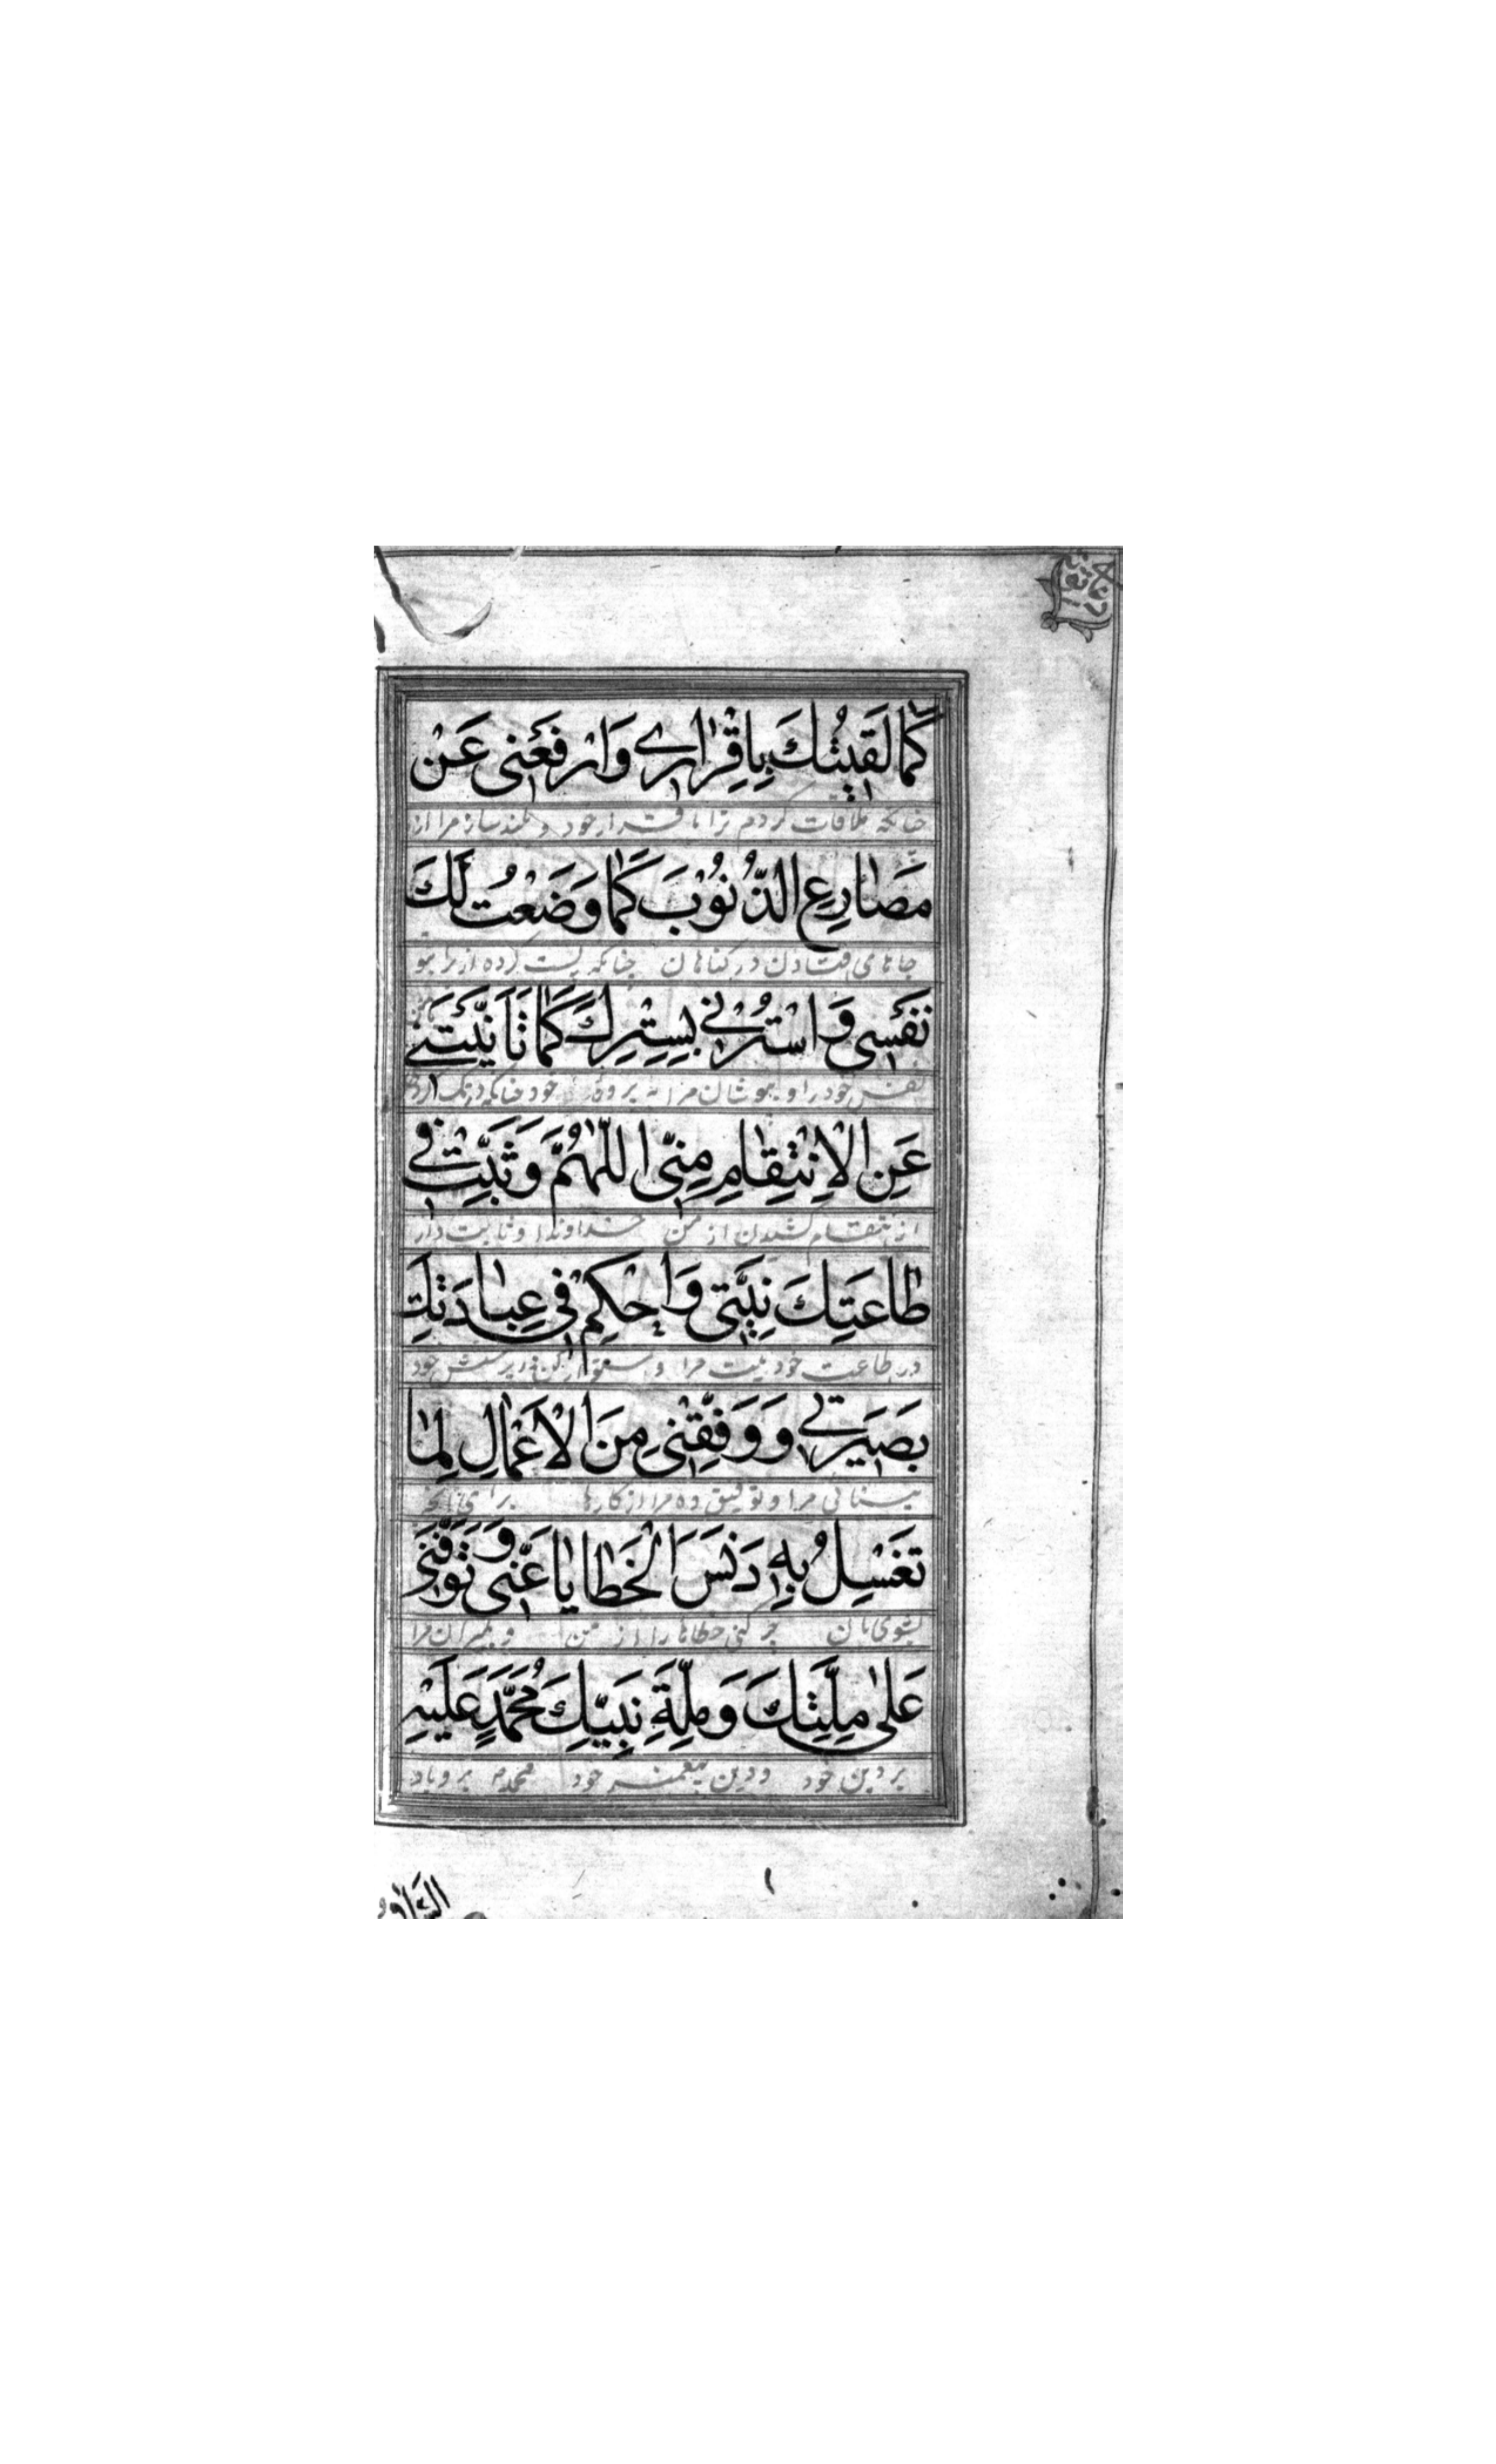 كَمٰا لَقٖيتُكَ بِاِقْرٰارٖي وَارْفَعْنٖي عَنْ
چنانكه ملاقات كردم ترا باقرار خود و بلند ساز مرا از
مَصٰارِعِ الذُّنُوْبِ كَمٰا وَضَعْتُ لَكَ
جاهای فتادن در كناهان چنانكه پست كرده ام برا تو
نَفْسٖي وَاسْتُرْنٖي بِسِتْرِكَ كَمٰا تَاَنَّيْتَنٖي
نفس خود را و بپوشان مرا به پردهٔ خود چنانكه درنك كردی
عَنِ الْاِنْتِقٰامِ مِنّٖي اَللّٰهُمَّ وَثَبِّتْ فٖي
از انتقام كشیدن از من خداوندا و ثابت دار
طٰاعَتِكَ نِيَّتٖي وَاَحْكِمْ فٖي عِبٰادَتِكَ
در طاعت خود نیت مرا و استوار كن در پرستش خود
بَصٖيرَتٖي وَوَفِّقْنٖي مِنَ الْاَعْمٰالِ لِمٰا
بینائی مرا و توفیق ده مرا از كارها برای آنچه
تَغْسِلُ بِهٖ دَنَسَ الْخَطٰايٰا عَنّٖي وَتَوَفَّنٖي
بشوی بآن چركنی خطاها را از من و بمیران مرا
عَلٰى مِلَّتِكَ وَمِلَّةِ نَبِيِّكَ مُحَمَّدٍ عَلَيْهِ
بر دین خود و دین پیغمبر خود محمد م بر و باد
السَّلَامُ و